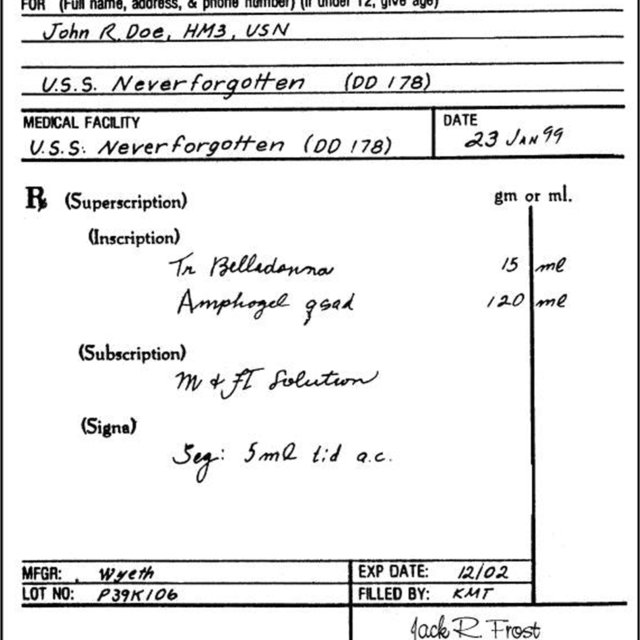 FOR (Full name, address, & phone number) (If under 12, give age)
John R. Doe, HM3, USN
U.S.S. Neverforgotten (DD 178)
MEDICAL FACILITY
U.S.S. Neverforgotten (DD 178)
DATE
23 JAN 99
℞ (Superscription)
gm or ml.
(Inscription)
Tr Belladonna 15 ml
Amphogel qsad 120 ml
(Subscription)
M & FT Solution
(Signa)
Sig: 5ml tid a.c.
MFGR: Wyeth
EXP DATE: 12/02
LOT NO: P39K106
FILLED BY: KMT
Jack R. Frost